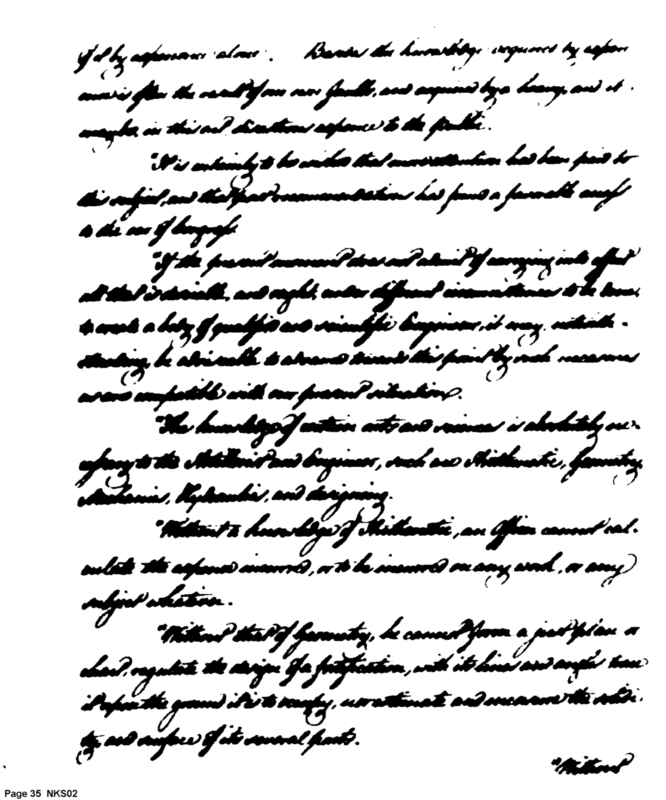 of it by experience alone. Besides the knowledge acquired by experi
ence is often the result of our own faults, and acquired by a heavy, and it
may be, in this as directions expence to the public.
"It is certainly to be wished that more attention had been paid to
this subject, and that past recommendations had found a favorable access
to the ear of Congress.
"If the present moment does not admit of carrying into effect
all that is desirable, and might, under different circumstances to be done,
to create a body of qualified and scientific Engineers, it may, notwith-
standing, be adviseable to advance towards this point by such measures
as are compatible with our present situation.
"The knowledge of certain arts and sciences is absolutely ne-
cessary to the Artillerist and Engineer, such are Arithmetic, Geometry,
Mechanics, Hydraulics, and designing.
"Without a knowledge of Arithmetic, an Officer cannot cal-
culate the expence incurred, or to be incurred on any work, or any
subject whatever.
"Without that of Geometry, he cannot form a just plan or
chart, regulate the design of a fortification, with its lines and angles trace
it upon the ground it is to occupy, nor estimate and measure the solidi-
ty, and surface of its several parts.
"Without
Page 35 NKS02